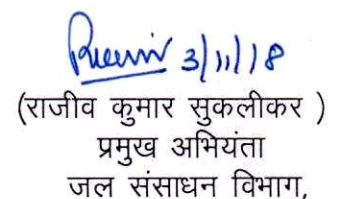 3/11/18
(राजीव कुमार सुकलीकर )
प्रमुख अभियंता
जल संसाधन विभाग,